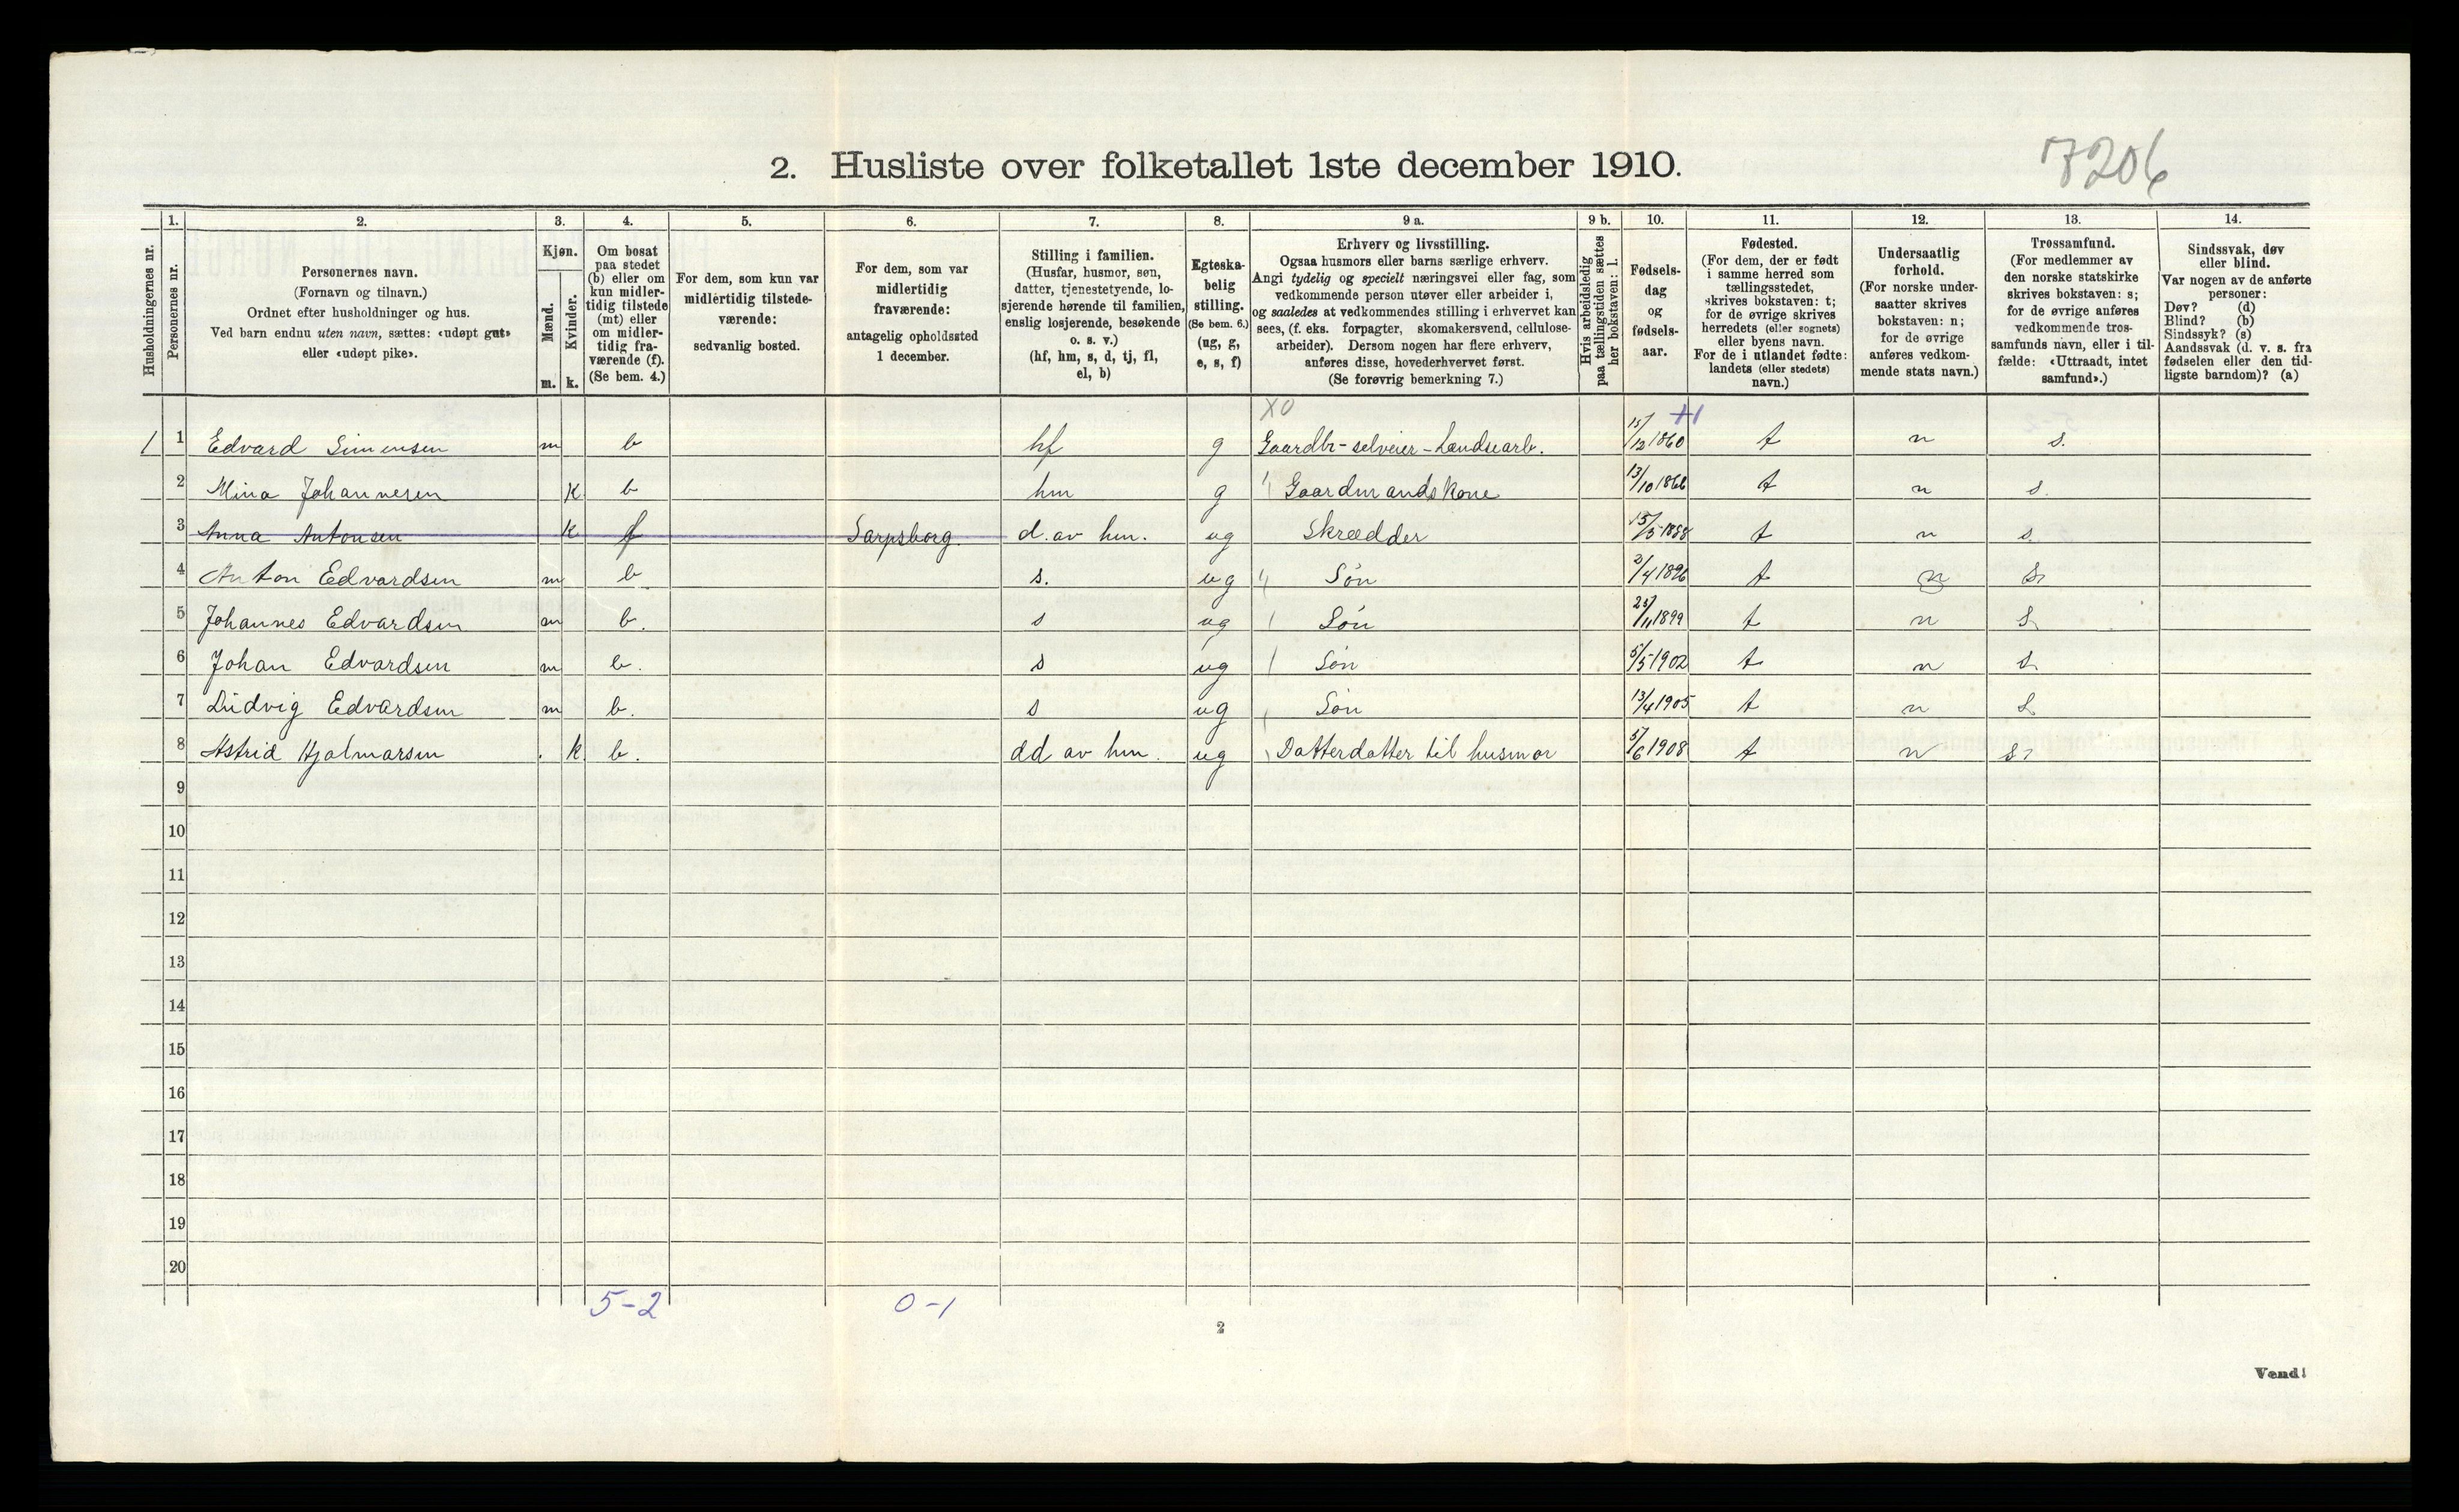 7206
2. Husliste over folketallet 1ste december 1910.
Husholdningernes nr.
1.
Personernes nr.
2.
Personernes navn.
(Fornavn og tilnavn.)
Ordnet efter husholdninger og hus.
Ved barn endnu uten navn, sættes: «udøpt gut»
eller «udøpt pike».
3.
Kjøn.
Mænd.
Kvinder.
m. k.
4.
Om bosat
paa stedet
(b) eller om
kun midler-
tidig tilstede
(mt) eller
om midler-
tidig fra-
værende (f).
(Se bem. 4.)
5.
For dem, som kun var
midlertidig tilstede-
værende:
sedvanlig bosted.
6.
For dem, som var
midlertidig
fraværende:
antagelig opholdssted
1 december.
7.
Stilling i familien.
(Husfar, husmor, søn,
datter, tjenestetyende, lo-
sjerende hørende til familien,
enslig losjerende, besøkende
o. s. v.)
(hf, hm, s, d, tj, fl,
el, b)
8.
Egteska-
belig
stilling.
(Se bem. 6.)
(ug, g,
e, s, f)
9 a.
Erhverv og livsstilling.
Ogsaa husmors eller barns særlige erhverv.
Angi tydelig og specielt næringsvei eller fag, som
vedkommende person utøver eller arbeider i,
og saaledes at vedkommendes stilling i erhvervet kan
sees, (f. eks. forpagter, skomakersvend, cellulose-
arbeider). Dersom nogen har flere erhverv,
anføres disse, hovederhvervet først.
(Se forøvrig bemerkning 7.)
9 b.
Hvis arbeidsledig
paa tællingstiden sættes
her bokstaven: l.
10.
Fødsels-
dag
og
fødsels-
aar.
11.
Fødested.
(For dem, der er født
i samme herred som
tællingsstedet,
skrives bokstaven: t;
for de øvrige skrives
herredets (eller sognets)
eller byens navn.
For de i utlandet fødte:
landets (eller stedets)
navn.)
12.
Undersaatlig
forhold.
(For norske under-
saatter skrives
bokstaven: n;
for de øvrige
anføres vedkom-
mende stats navn.)
13.
Trossamfund.
(For medlemmer av
den norske statskirke
skrives bokstaven: s;
for de øvrige anføres
vedkommende tros-
samfunds navn, eller i til-
fælde: «Uttraadt, intet
samfund».)
14.
Sindssvak, døv
eller blind.
Var nogen av de anførte
personer:
Døv? (d)
Blind? (b)
Sindssyk? (s)
Aandssvak (d. v. s. fra
fødselen eller den tid-
ligste barndom)? (a)
X0
+1
1 1 Edvard Simensen m b hf g Gaardbr-selveier-Lændsearb. 15/12 1860 t n s.
2 Mina Johannesen k b hm g Gaardmandskone 13/10 1866 t n s.
3 Anna Antonsen k f Sarpsborg. d. av hm. ug Skrædder 15/5 1888 t n s.
4 Anton Edvardsen m b s. ug Søn 2/4 1896 t n s
5 Johannes Edvardsen m b. s ug Søn 25/11 1899 t n s
6 Johan Edvardsen m b. s ug Søn 5/5 1902 t n s
7 Ludvig Edvardsen m b. s ug Søn 13/4 1905 t n s
8 Astrid Hjalmarsen k b. dd av hm. ug Datterdatter til husmor 5/6 1908 t n s
9
10
11
12
13
14
15
16
17
18
19
20
5-2 0-1
2
Vend!